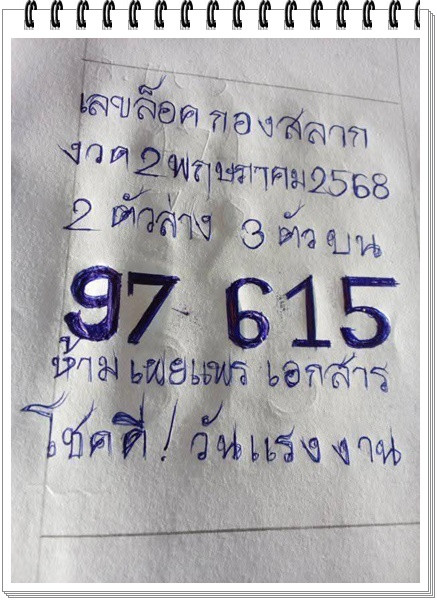 เลขล็อค กองสลาก
งวด 2 พฤษภาคม 2568
2 ตัวล่าง 3 ตัวบน
97 615
ห้าม เผยแพร เอกสาร
โชคดี ! วันแรงงาน